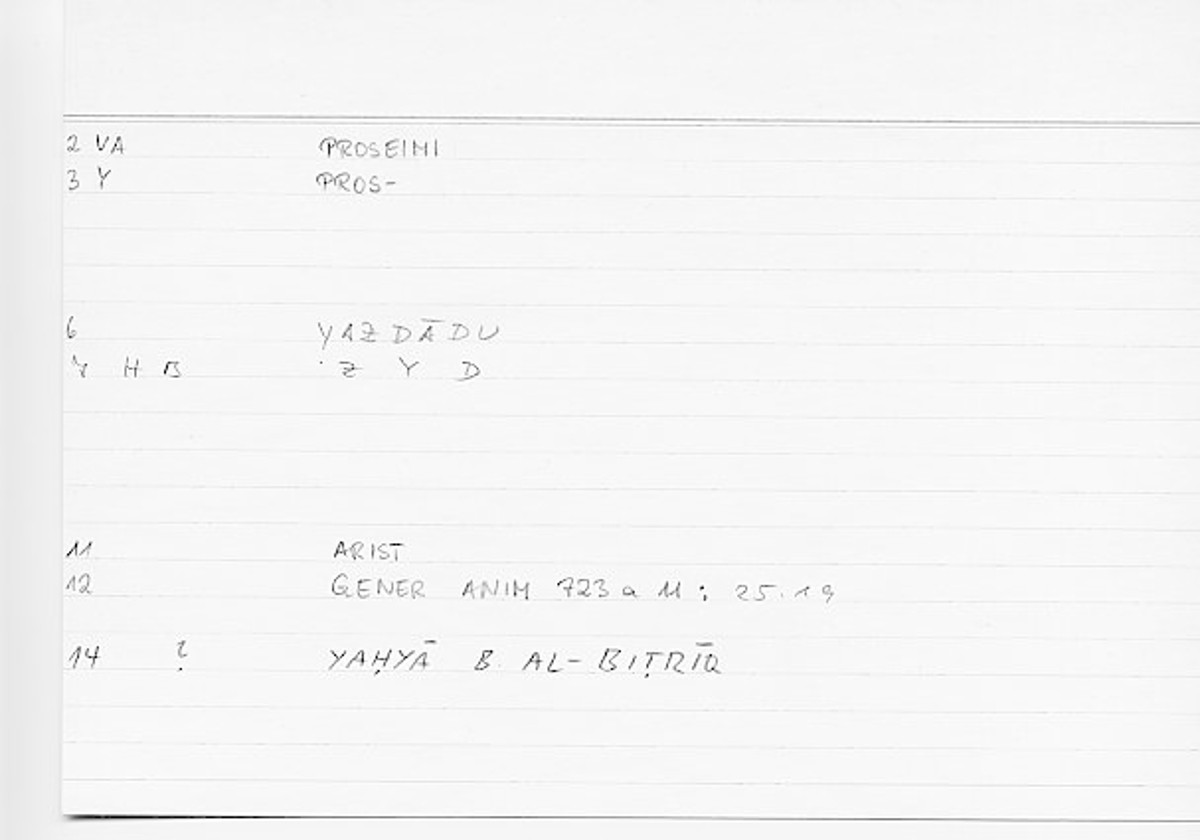 2 VA PROSEIMI
3 Y PROS-
6 YAZDĀDU
Y H B Z Y D
11 ARIST
12 GENER ANIM 723 a 11 ; 25.19
14 ? YAḤYĀ B. AL-BIṬRĪQ